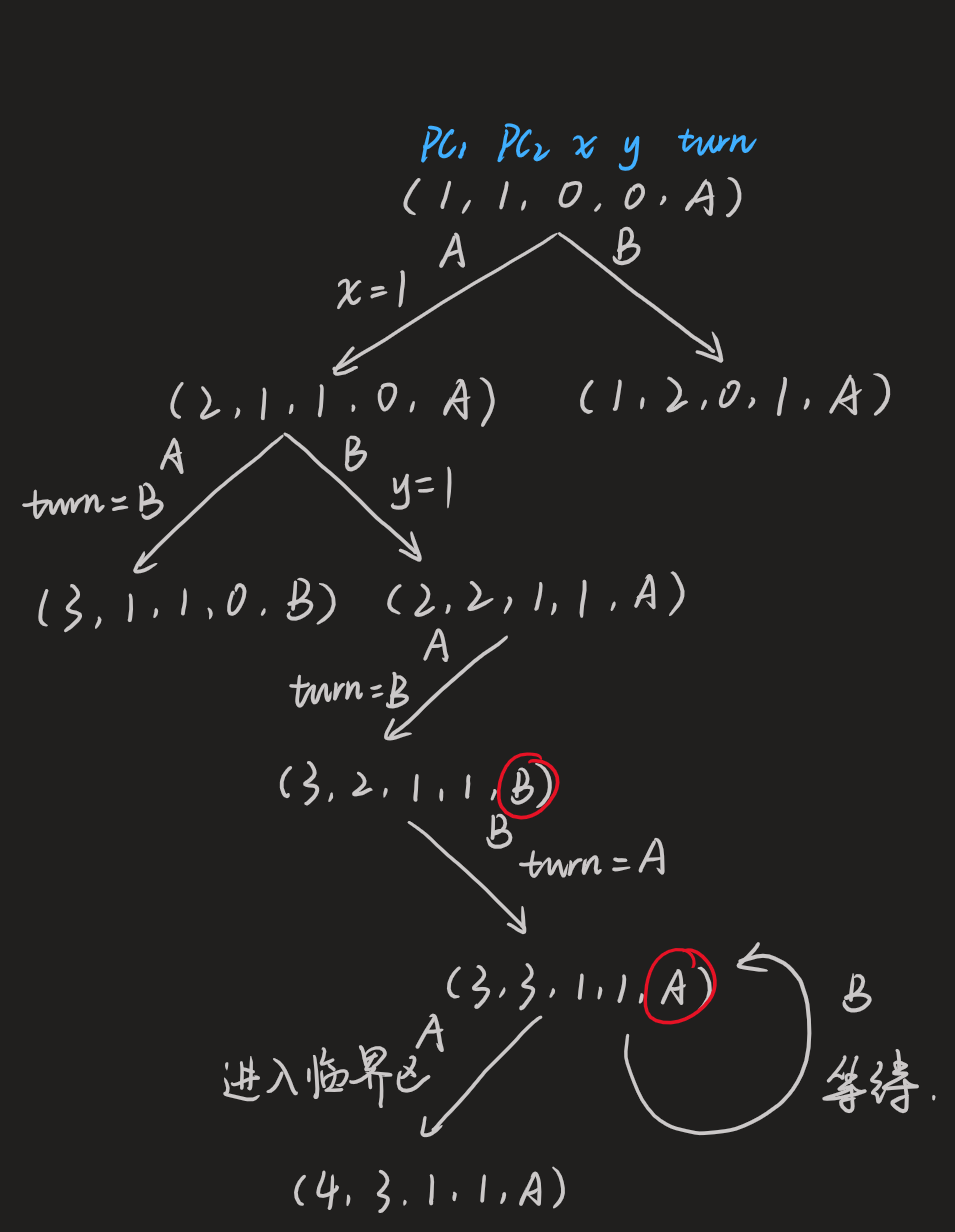 PC₁ PC₂ x y turn
(1, 1, 0, 0, A)
A B
x=1
(2, 1, 1, 0, A) (1, 2, 0, 1, A)
A B
turn=B y=1
(3, 1, 1, 0, B) (2, 2, 1, 1, A)
A
turn=B
(3, 2, 1, 1, B)
B
turn=A
(3, 3, 1, 1, A) B
A
进入临界区 等待.
(4, 3, 1, 1, A)